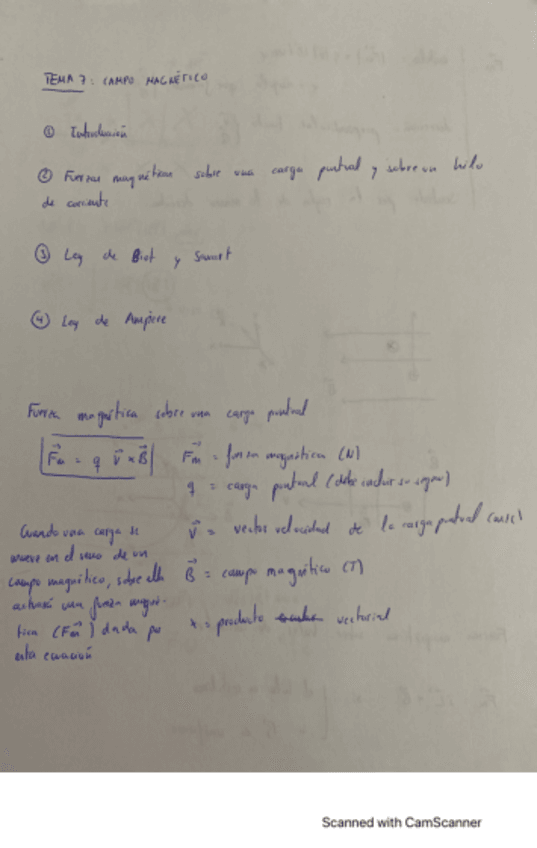 TEMA 7: CAMPO MAGNÉTICO
① Introducción
② Fuerzas magnéticas sobre una carga puntual y sobre un hilo
de corriente
③ Ley de Biot y Savart
④ Ley de Ampère
Fuerza magnética sobre una carga puntual
Fm = q v × B
Fm = fuerza magnética (N)
q = carga puntual (debe incluir su signo)
v = vector velocidad de la carga puntual (m/s)
B = campo magnético (T)
x = producto vectorial
Cuando una carga se
mueve en el seno de un
campo magnético, sobre ella
actuará una fuerza magné-
tica (Fm) dada por
esta ecuación
Scanned with CamScanner